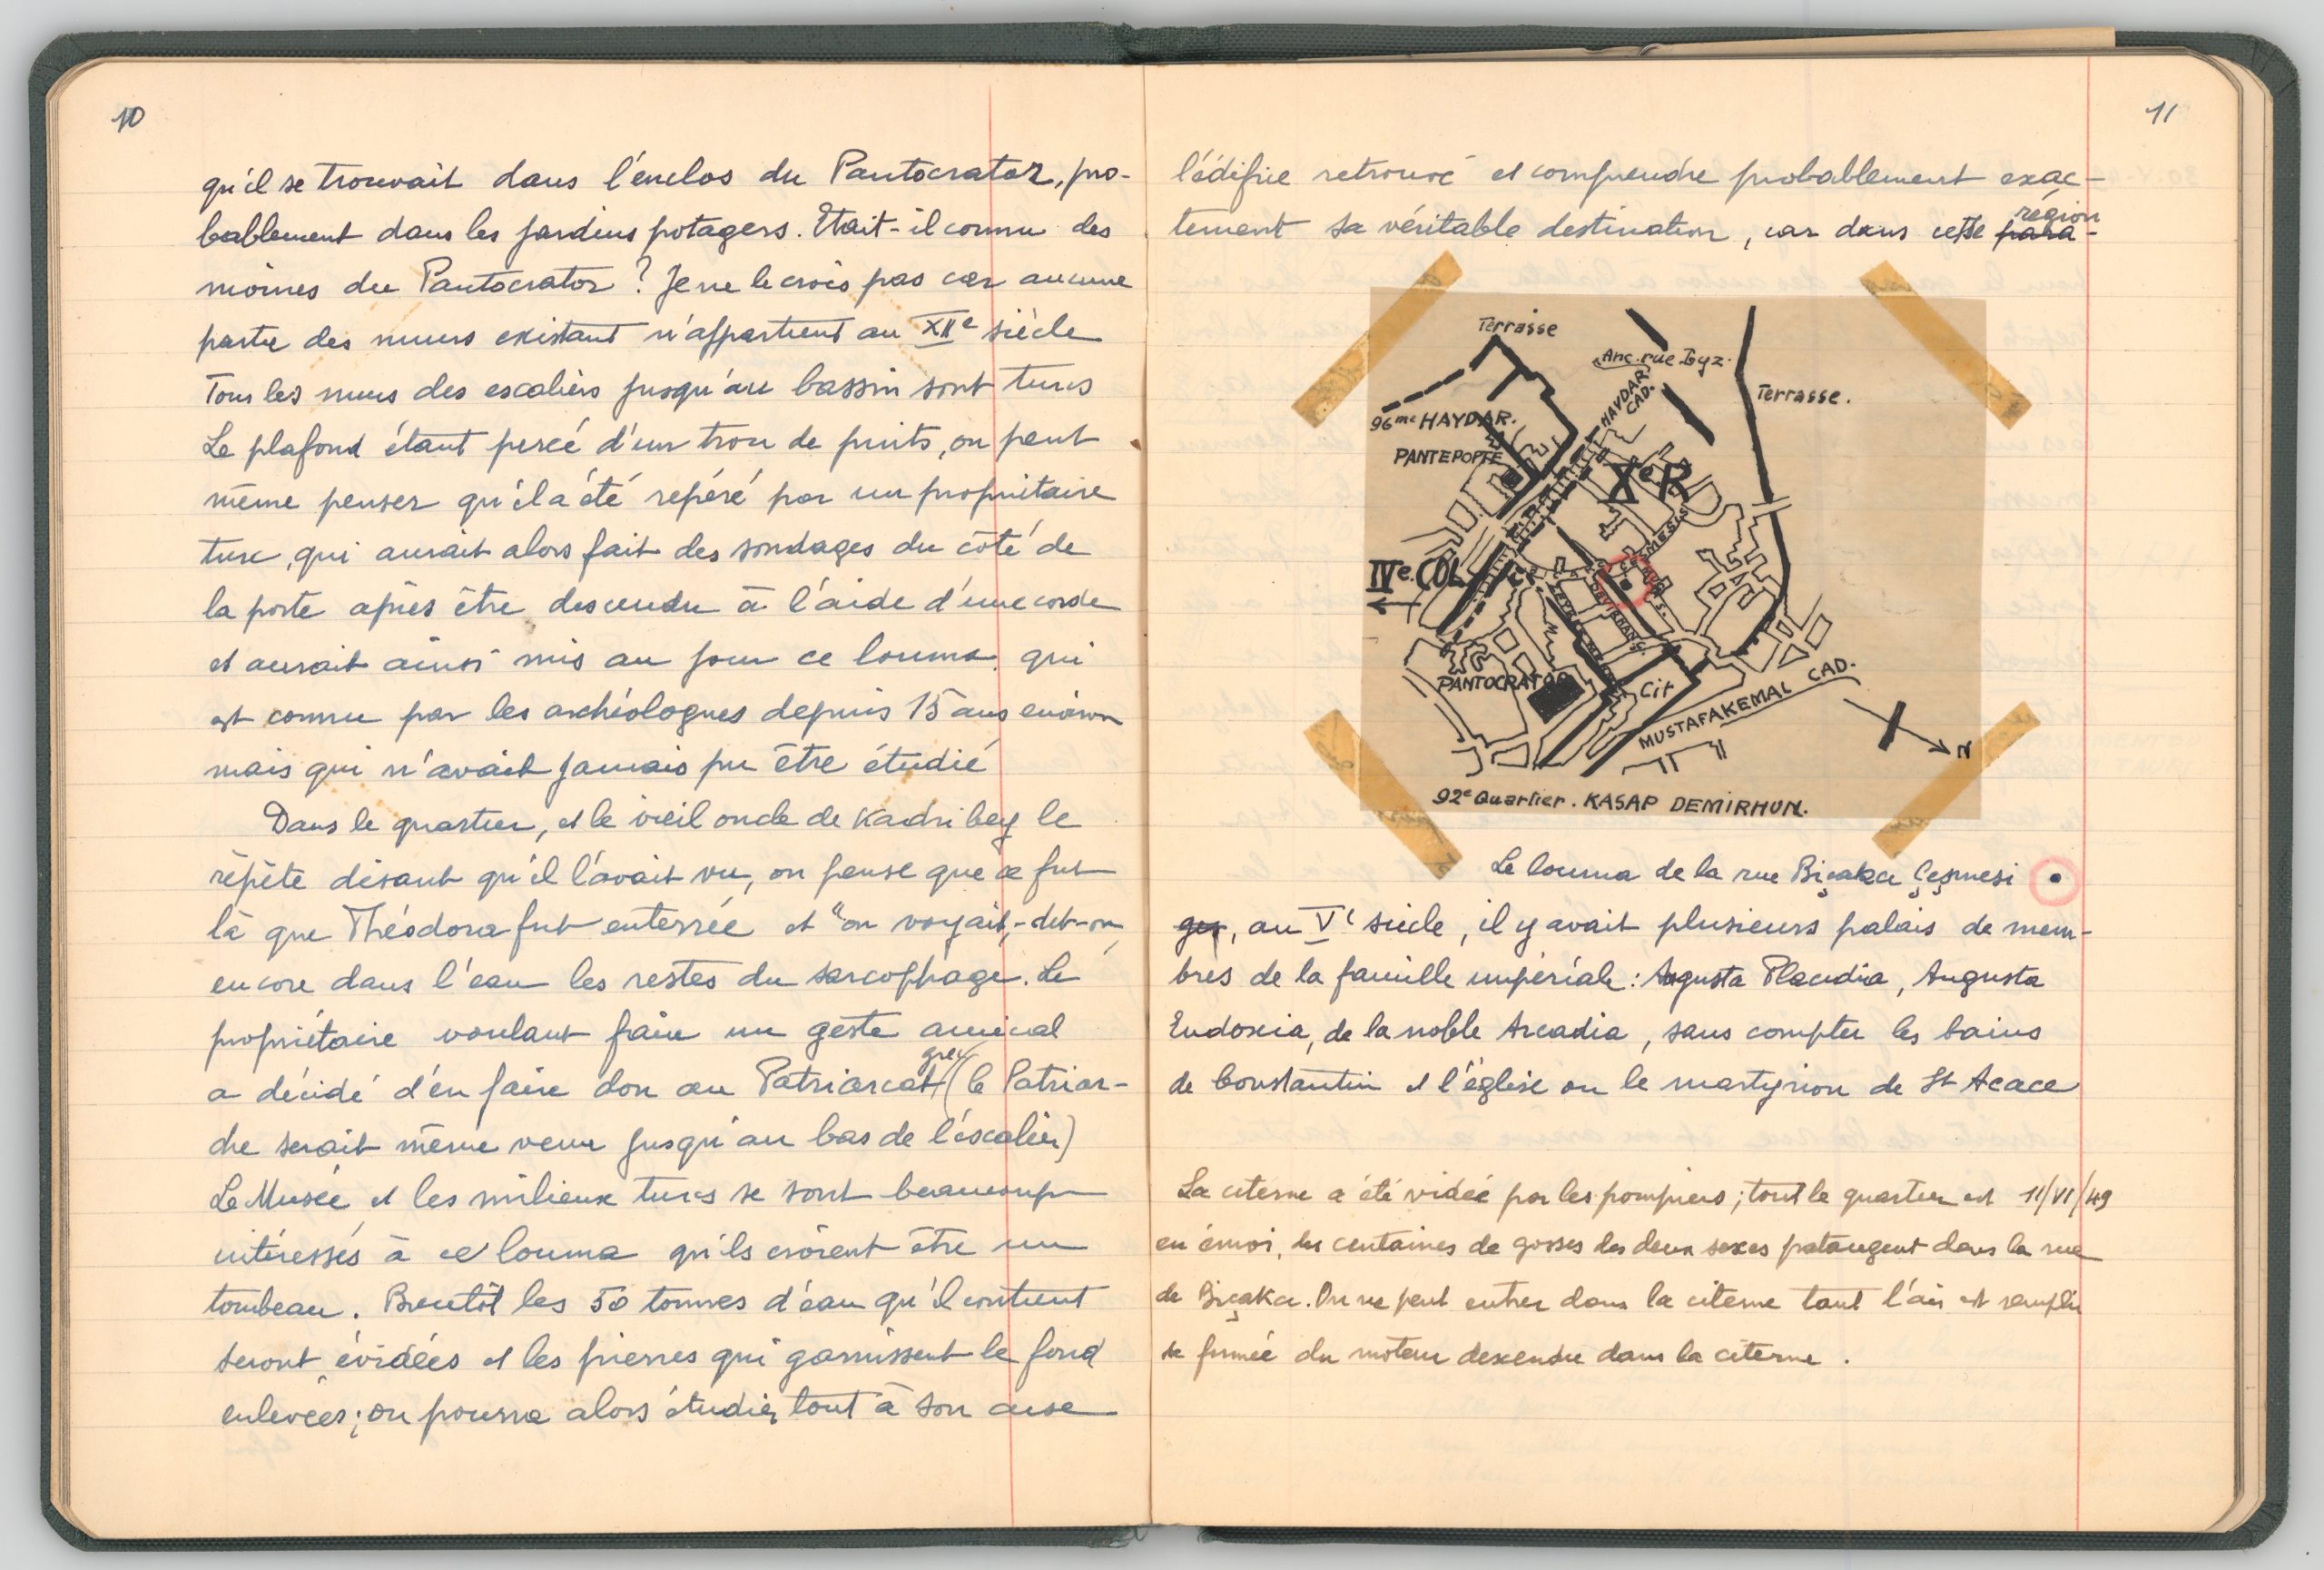 10
qu'il se trouvait dans l'enclos du Pantocrator, pro-
bablement dans les jardins potagers. Etait-il connu des
moines du Pantocrator ? Je ne le crois pas car aucune
partie des murs existant n'appartient au XIIe siècle
Tous les murs des escaliers jusqu'au bassin sont turcs
Le plafond étant percé d'un trou de puits, on peut
même penser qu'il a été repéré par un propriétaire
turc, qui aurait alors fait des sondages du côté de
la porte après être descendu à l'aide d'une corde
et aurait ainsi mis au jour ce louma qui
est connu par les archéologues depuis 15 ans environ
mais qui n'avait jamais pu être étudié
Dans le quartier, et le vieil oncle de Kadri bey le
répète disant qu'il l'avait vu, on pense que ce fut
là que Théodora fut enterrée et "on voyait,-dit-on,
encore dans l'eau les restes du sarcophage. Le
propriétaire voulant faire un geste amical
a décidé d'en faire don au Patriarcat grec (le Patriar-
che serait même venu jusqu'au bas de l'escalier)
Le Musée et les milieux turcs se sont beaucoup
intéressés à ce louma qu'ils croient être un
tombeau. Bientôt les 50 tonnes d'eau qu'il contient
seront évidées et les pierres qui garnissent le fond
enlevées; on pourra alors étudier tout à son aise
11
l'édifice retrouvé et comprendre probablement exac-
tement sa véritable destination, car dans cette para- région
Terrasse
Anc. rue Byz.
HAYDAR CAD.
Terrasse.
96me HAYDAR.
PANTEPOPTE
Xe R
IVe. COL
PANTOCRATOR
Cit
MUSTAFAKEMAL CAD.
N
92e Quartier. KASAP DEMIRHUN.
Le louma de la rue Biçakcı Çeşmesi
ges, au Ve siècle, il y avait plusieurs palais de mem-
bres de la famille impériale : Augusta Placidia, Augusta
Eudoxia, de la noble Arcadia, sans compter les bains
de Constantin et l'église ou le martyrion de St Acace
La citerne a été vidée par les pompiers; tout le quartier est 11/VI/49
en émoi, des centaines de gosses des deux sexes pataugent dans la rue
de Biçakcı. On ne peut entrer dans la citerne tant l'air est rempli
de fumée du moteur descendu dans la citerne.